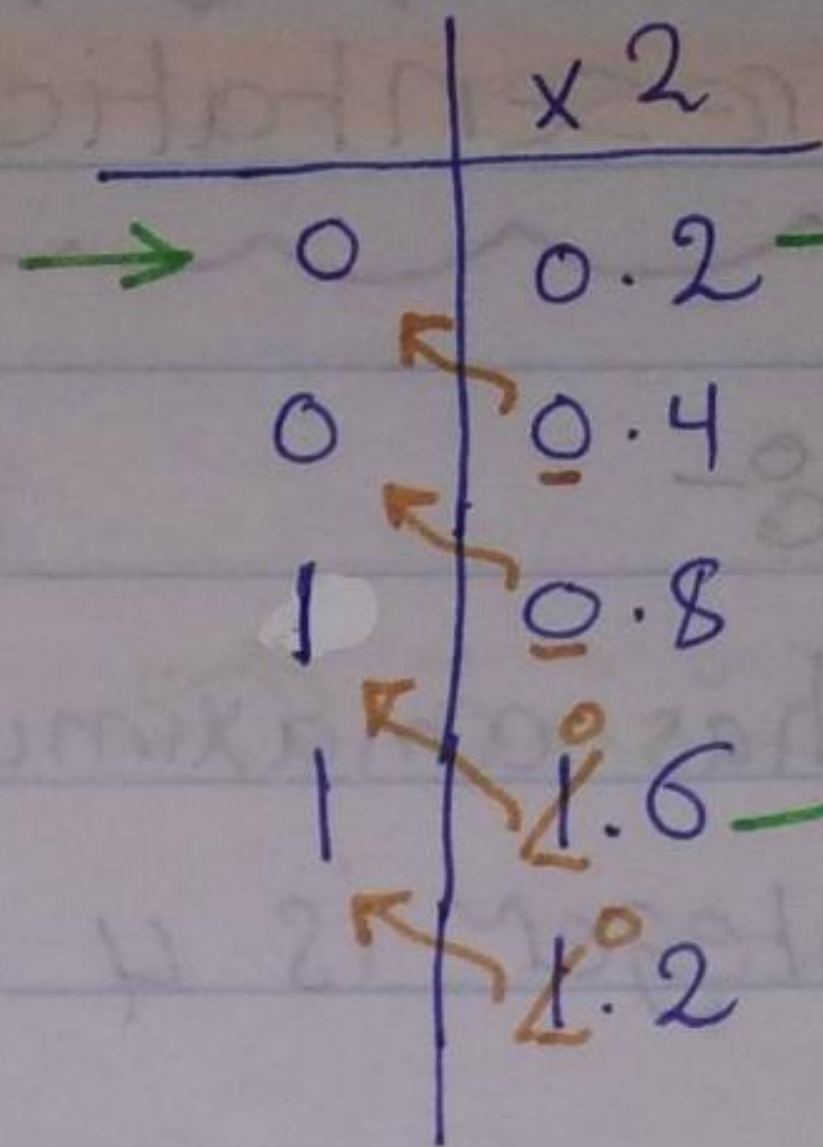 × 2
0 0.2
0 0.4
1 0.8
1 1.6 0
1.2 0